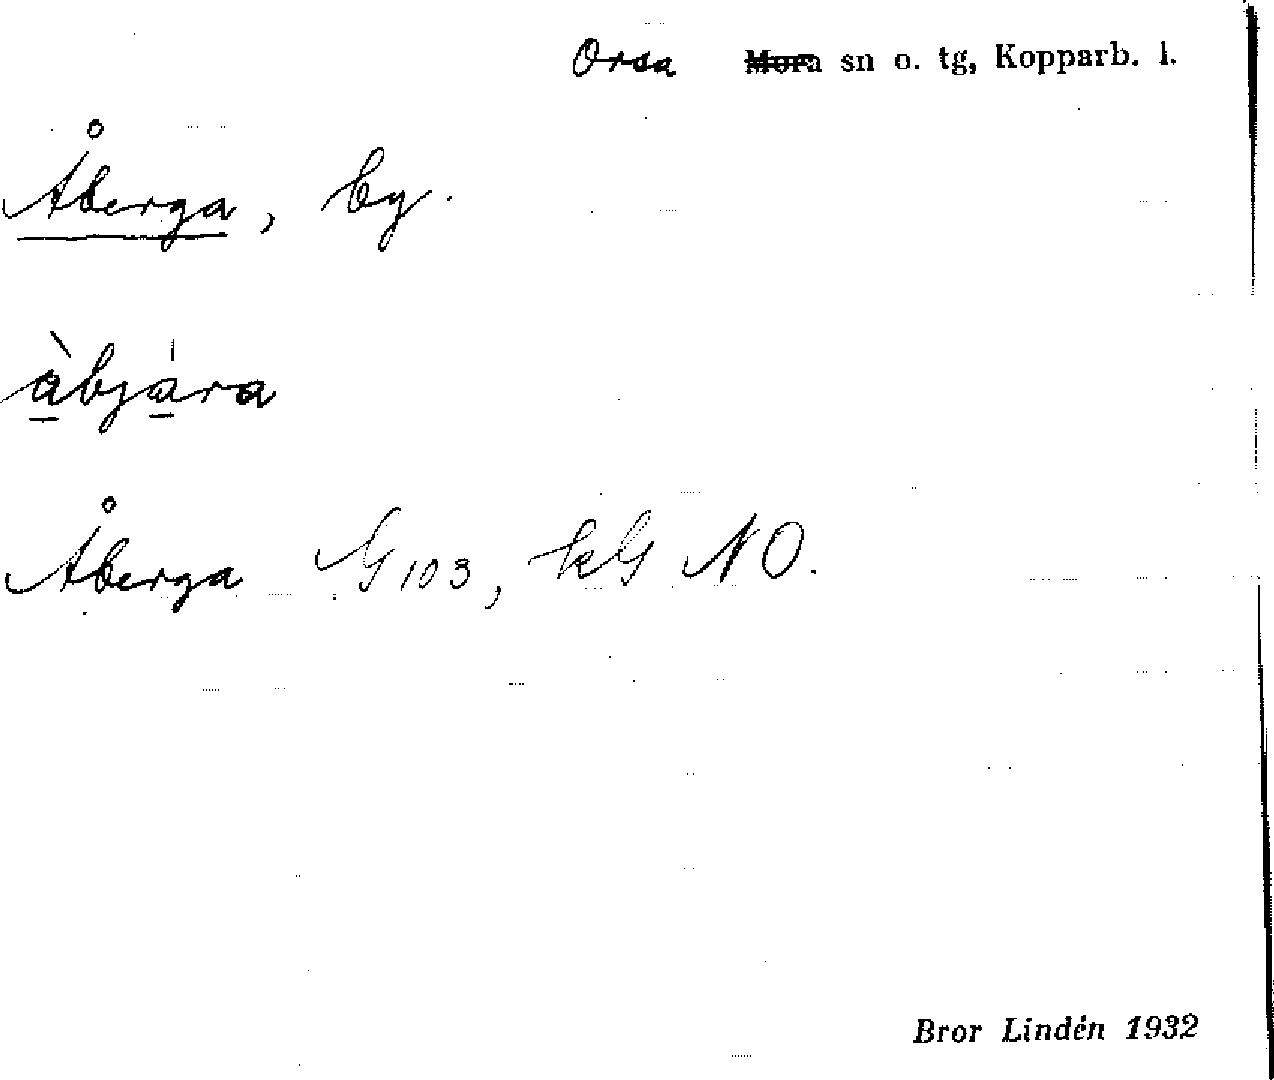 Orsa Mora sn o. tg, Kopparb. l.
Åberga, by.
àbjàra
Åberga G103, kG NO.
Bror Lindén 1932